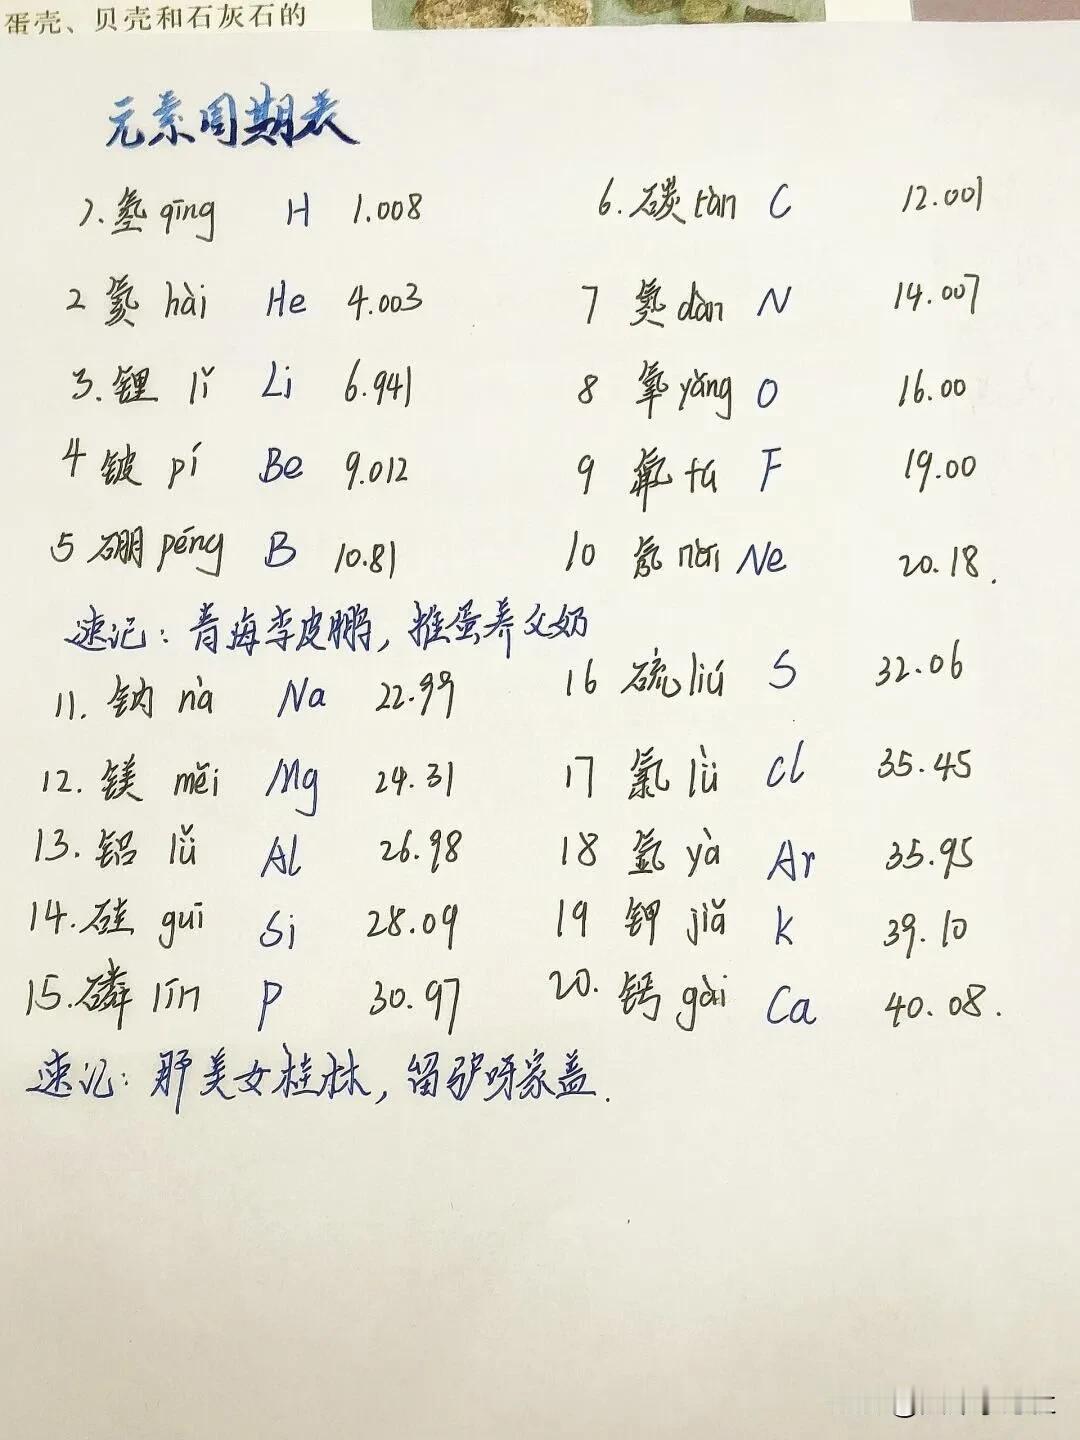 蛋壳、贝壳和石灰石的
元素周期表
1. 氢 qīng H 1.008
6. 碳 tàn C 12.001
2 氦 hài He 4.003
7 氮 dàn N 14.007
3. 锂 lǐ Li 6.941
8 氧 yǎng O 16.00
4 铍 pí Be 9.012
9 氟 fú F 19.00
5 硼 péng B 10.81
10 氖 nǎi Ne 20.18.
速记：青海李皮鹏，推蛋养父奶
11. 钠 nà Na 22.99
16 硫 liú S 32.06
12. 镁 měi Mg 24.31
17 氯 lǜ Cl 35.45
13. 铝 lǚ Al 26.98
18 氩 yà Ar 35.95
14. 硅 guī Si 28.09
19 钾 jiǎ K 39.10
15. 磷 līn P 30.97
20. 钙 gài Ca 40.08.
速记：那美女桂林，留驴呀家盖.